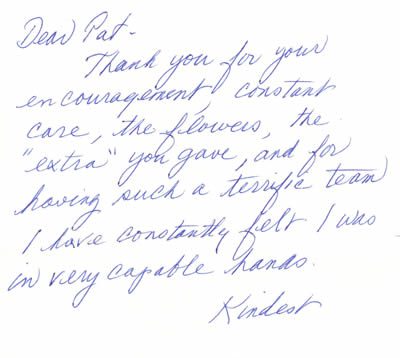 Dear Pat -
Thank you for your
encouragement, constant
care, the flowers, the
"extra" you gave, and for
having such a terrific team
I have constantly felt I was
in very capable hands.
Kindest